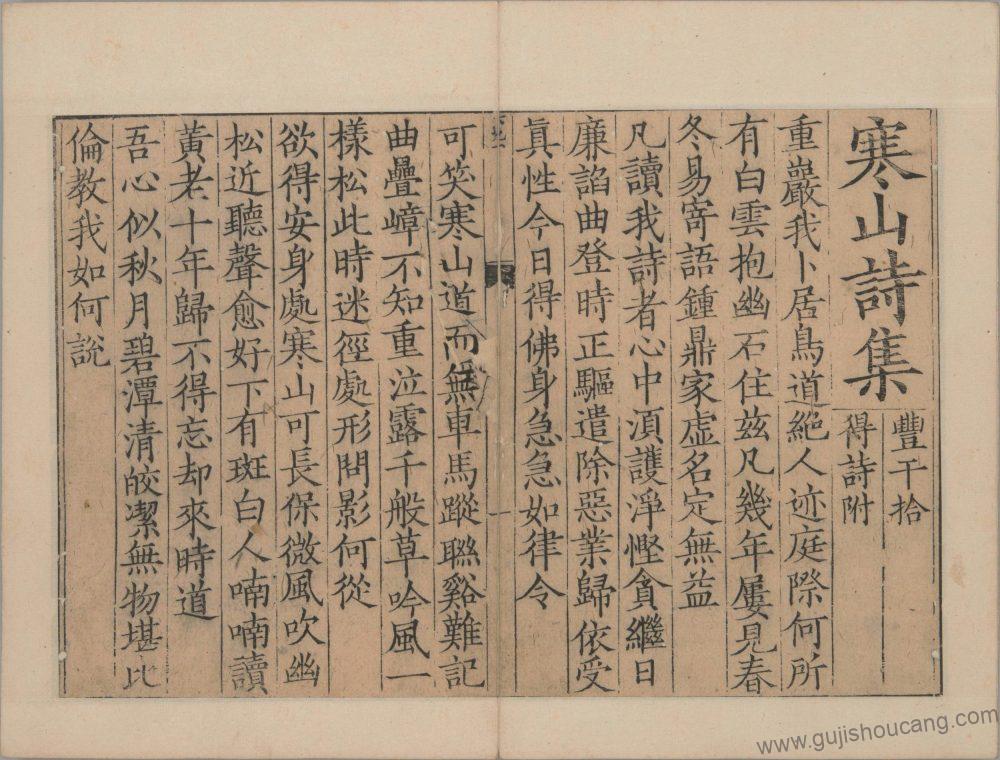 寒山詩集
豐干拾
得詩附
重巖我卜居鳥道絕人迹庭際何所
有白雲抱幽石住茲凡幾年屢見春
冬易寄語鍾鼎家虛名定無益
凡讀我詩者心中湏護淨慳貪繼日
廉諂曲登時正驅遣除惡業歸依受
眞性今日得佛身急急如律令
一
可笑寒山道而無車馬蹤聮谿難記
曲疊嶂不知重泣露千般草吟風一
樣松此時迷徑處形問影何從
欲得安身處寒山可長保微風吹幽
松近聽聲愈好下有斑白人喃喃讀
黃老十年歸不得忘却來時道
吾心似秋月碧潭清皎潔無物堪比
倫教我如何說
www.gujishoucang.com